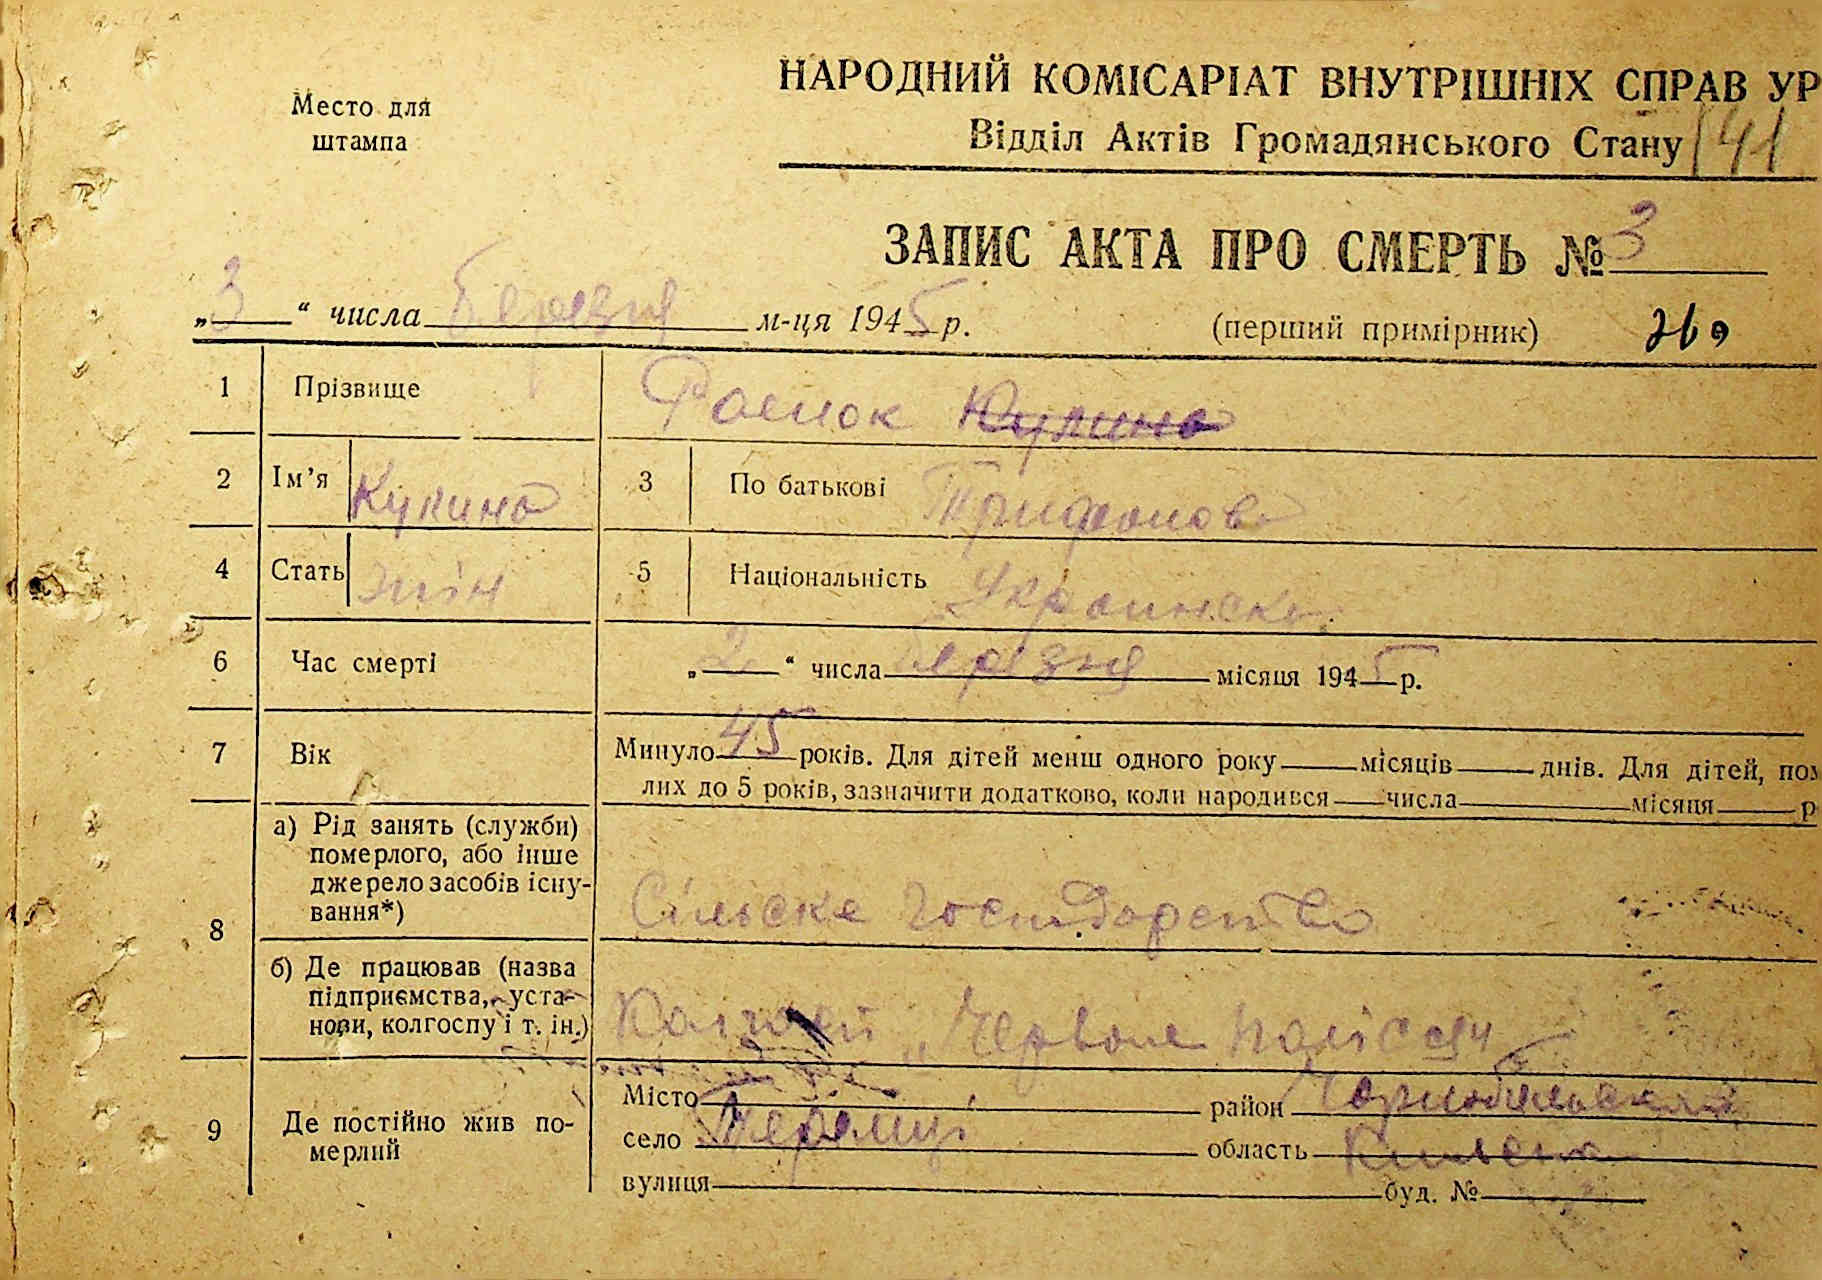 Место для
штампа
НАРОДНИЙ КОМІСАРІАТ ВНУТРІШНІХ СПРАВ УР
Відділ Актів Громадянського Стану
141
ЗАПИС АКТА ПРО СМЕРТЬ № 3
„3“ числа березня м-ця 1945 р.
(перший примірник)
1 Прізвище
2 Ім’я Кулина 3 По батькові Трифонова
4 Стать жін 5 Національність Украинска
6 Час смерті „2“ числа березня місяця 1945 р.
7 Вік Минуло 45 років. Для дітей менш одного року місяців днів. Для дітей, пом
лих до 5 років, зазначити додатково, коли народився числа місяця р
8 а) Рід занять (служби)
померлого, або інше
джерело засобів існу-
вання*)
Сільске господарство
б) Де працював (назва
підприємства, уста-
нови, колгоспу і т. ін.)
Колгосп „Червоне Полісся“
9 Де постійно жив по-
мерлий
Місто район Чорнобильский
село Теремці область Київска
вулиця буд. №